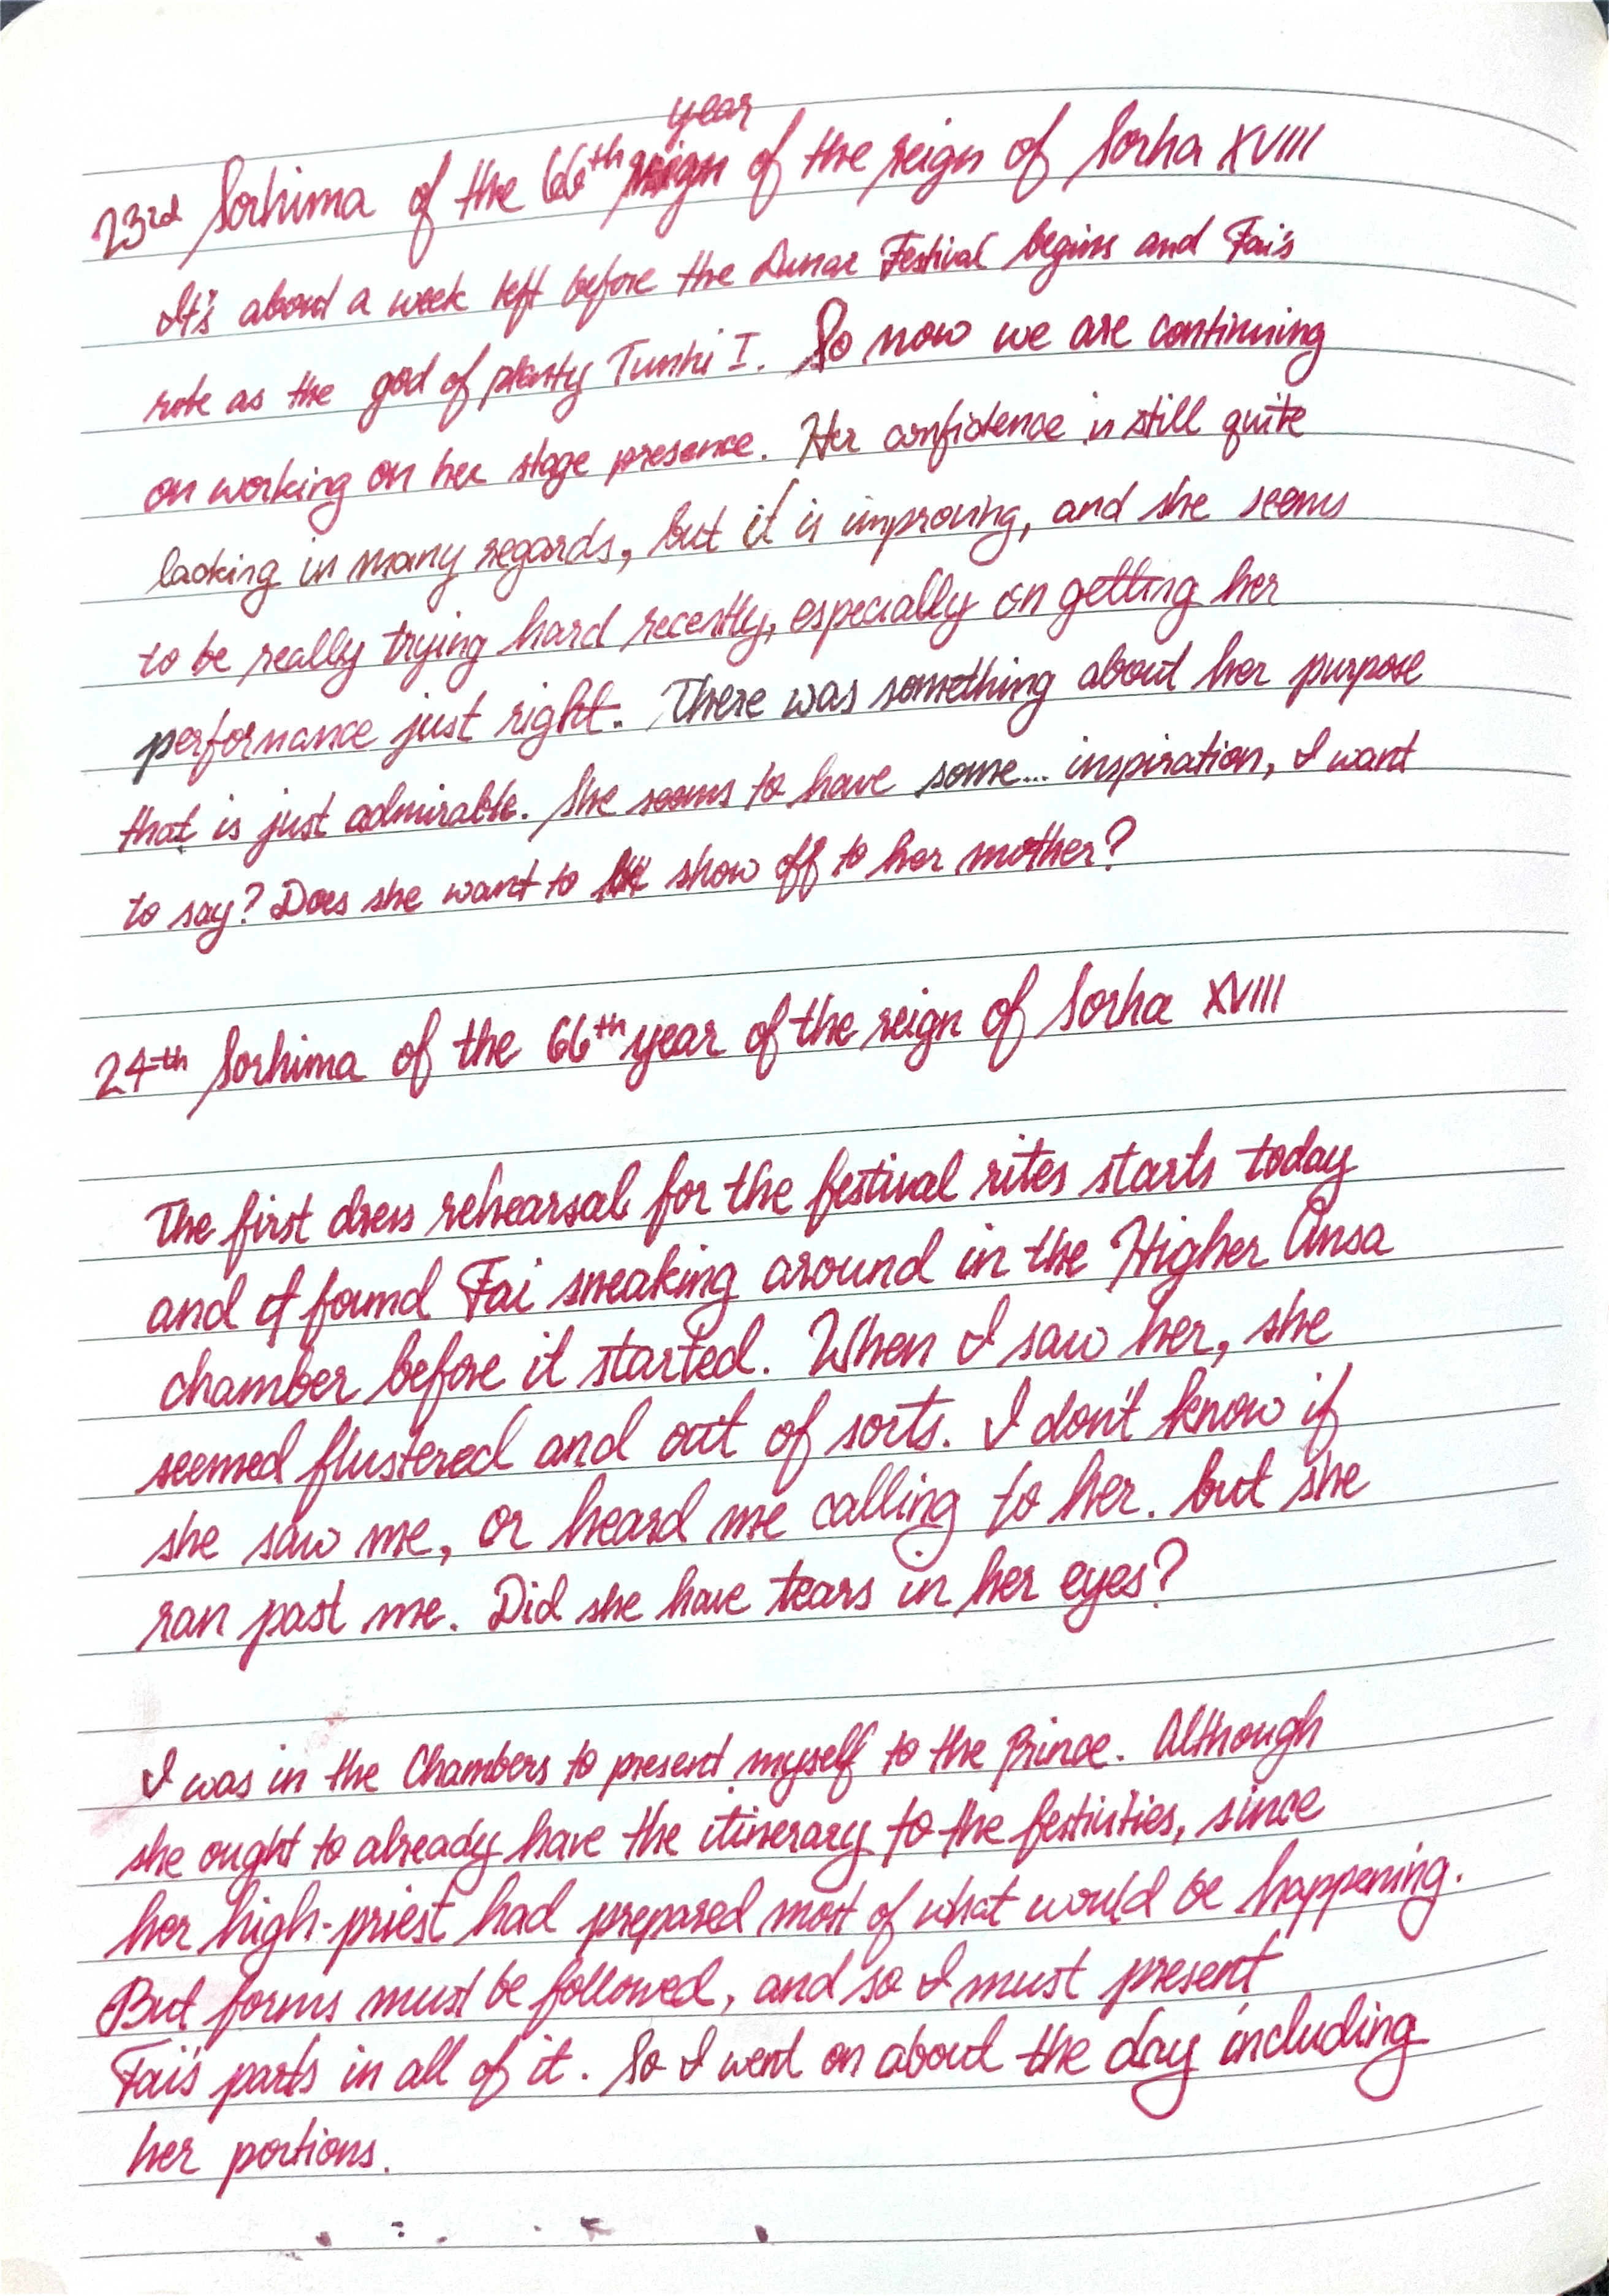 23rd Sorhima of the 66th year of the reign of Sorha XVIII
It's about a week left before the Lunar Festival begins and Fai's
role as the god of plenty Tunhi I. So now we are continuing
on working on her stage presence. Her confidence is still quite
lacking in many regards, but it is improving, and she seems
to be really trying hard recently, especially on getting her
performance just right. There was something about her purpose
that is just admirable. She seems to have some... inspiration, I want
to say? Does she want to show off to her mother?
24th Sorhima of the 66th year of the reign of Sorha XVIII
The first dress rehearsal for the festival rites starts today
and I found Fai sneaking around in the Higher Ansa
chamber before it started. When I saw her, she
seemed flustered and out of sorts. I don't know if
she saw me, or heard me calling to her. but she
ran past me. Did she have tears in her eyes?
I was in the Chambers to present myself to the Prince. Although
she ought to already have the itinerary to the festivities, since
her high-priest had prepared most of what would be happening.
But forms must be followed, and so I must present
Fai's parts in all of it. So I went on about the day including
her portions.